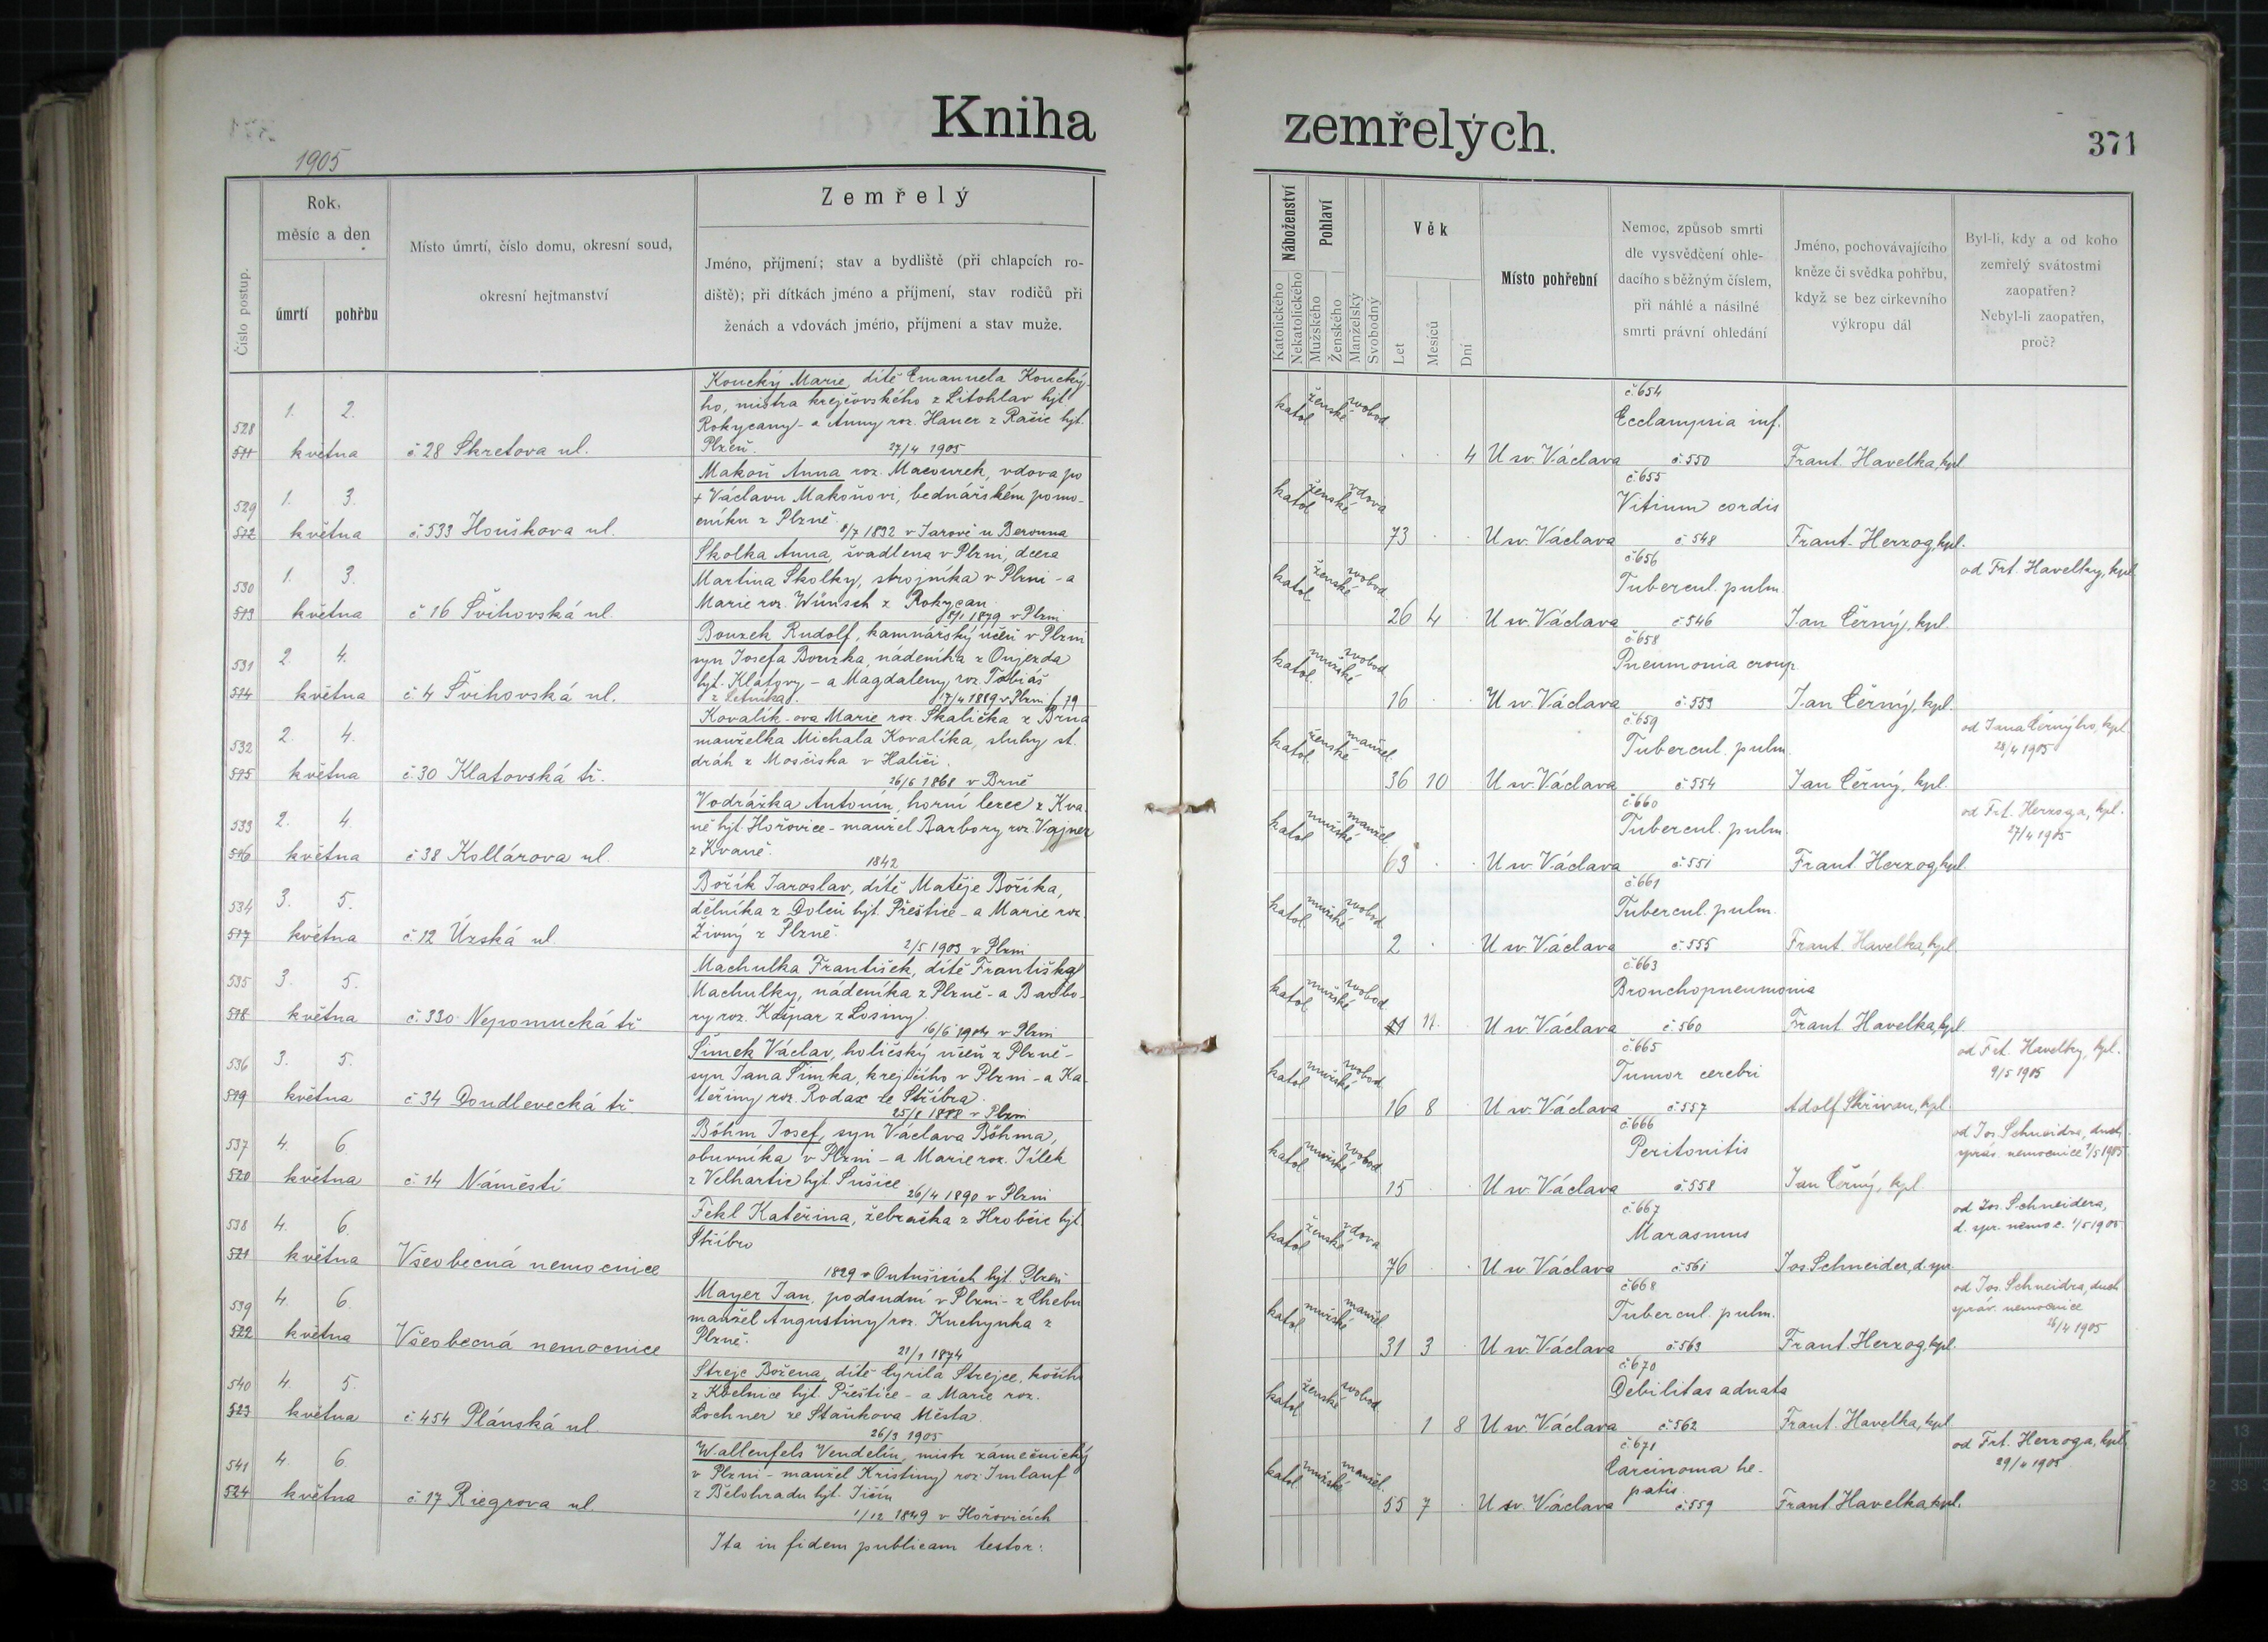 Kniha
zemřelých.
371
1905
Číslo postup.
Rok,
měsíc a den
úmrtí
pohřbu
Místo úmrtí, číslo domu, okresní soud,
okresní hejtmanství
Zemřelý
Jméno, příjmení; stav a bydliště (při chlapcích ro-
diště); při dítkách jméno a příjmení, stav rodičů při
ženách a vdovách jméno, příjmení a stav muže.
Náboženství
Katolického
Nekatolického
Pohlaví
Mužského
Ženského
Manželský
Svobodný
Věk
Let
Mesíců
Dní
Místo pohřební
Nemoc, způsob smrti
dle vysvědčení ohle-
dacího s běžným číslem,
při náhlé a násilné
smrti právní ohledání
Jméno, pochovávajícího
kněze či svědka pohřbu,
když se bez cirkevního
výkropu dál
Byl-li, kdy a od koho
zemřelý svátostmi
zaopatřen?
Nebyl-li zaopatřen,
proč?
528
511
1. 2.
května
č 28 Škretova ul.
Koucký Marie, dítě Emanuela Koucký-
ho, mistra krejčovského z Litohlav hjt
Rokycany - a Anny roz. Hauer z Račic hjt.
Plzeň. 27/4 1905
katol ženské svobod
4
U sv. Václava
č 654
Ecclampsia inf.
č. 550
Frant. Havelka, kpl
529
512
1. 3.
května
č. 533 Houškova ul.
Makoň Anna roz. Macourek, vdova po
+ Václavu Makoňovi, bednářském pomo-
cníku z Plzně.
8/7 1832 v Jarově u Berouna
katol ženské vdova
73
U sv. Václava
č 655
Vitium cordis
č 548
Frant. Herzog, kpl.
530
513
1. 3.
května
č 16 Švihovská ul.
Skolka Anna, švadlena v Plzni, dcera
Martina Skolky, strojníka v Plzni - a
Marie roz. Wünsch z Rokycan
1879 v Plzni
katol ženské svobod
26 4
U sv. Václava
č 656
Tubercul. pulm.
č 546
Jan Černý, kpl.
od Frt. Havelky, kpl
531
514
2. 4.
května
č. 4 Švihovská ul.
Bouzek Rudolf, kamnářský učeň v Plzni
syn Josefa Bouzka, nádeníka z Oujezda
hjt. Klatovy - a Magdaleny roz. Tobiáš
z Letníka. 17/4 1889 v Plzni
katol. mužské svobod
16
U sv. Václava
č 658
Pneumonia croup.
č. 553
Jan Černý, kpl.
532
515
2. 4.
května
č. 30 Klatovská tř.
Kovalík-ova Marie roz. Skalička z Brna
manželka Michala Kovalíka, sluhy st.
dráh z Mościska v Haliči.
26/6 1868 v Brně
katol ženské manžel.
36 10
U sv. Václava
č 659
Tubercul. pulm.
č 554
Jan Černý, kpl.
od Jana Černýho, kpl.
28/4 1905
533
516
2. 4.
května
č 38 Kollárova ul.
Vodrážka Antonín, horní lezec z Kva-
ně hjt. Hořovice - manžel Barbory roz. Vajner
z Kvaně.
1842
katol mužské manžel.
63
U sv. Václava
č 660
Tubercul. pulm.
č 551
Frant. Herzog, kpl
od Frt. Herzoga, kpl.
27/4 1905
534
517
3. 5.
května
č 12 Úzská ul.
Bořík Jaroslav, dítě Matěje Boříka,
dělníka z Dolců hjt. Přeštice - a Marie roz.
Živný z Plzně.
2/5 1903 v Plzni
katol. mužské svobod
2
U sv. Václava
č 661
Tubercul. pulm.
č 555
Frant. Havelka, kpl
535
518
3. 5.
května
č. 330 Nepomucká tř
Machulka František, dítě Františka
Machulky, nádeníka z Plzně - a Barbo-
ry roz. Kašpar z Losiny.
16/6 1904 v Plzni
katol mužské svobod
11
U sv. Václava
č 663
Bronchopneumonia
č 560
Frant. Havelka, kpl
536
519
3. 5.
května
č 34 Doudlevecká tř
Šimek Václav, holičský učeň z Plzně -
syn Jana Šimka, krejčího v Plzni - a Ka-
teřiny roz. Rodax ze Stříbra.
25/8 1888 v Plzni
katol mužské svobod
16 8
U sv. Václava
č 665
Tumor cerebri
č 557
Adolf Skřivan, kpl.
od Frt. Havelky, kpl.
537
520
4. 6.
května
č. 14 Náměstí
Böhm Josef, syn Václava Böhma,
obuvníka v Plzni - a Marie roz. Jílek
z Velhartic hjt. Sušice
26/4 1890 v Plzni
katol mužské svobod
15
U sv. Václava
č 666
Peritonitis
č 558
Jan Černý, kpl
od Jos. Schneidra, duch.
správ. nemocnice 1905
538
521
4. 6.
května
Všeobecná nemocnice
Fekl Kateřina, žebračka z Hrobčic hjt.
Stříbro
1829 v Ontušicích hjt. Plzeň
katol ženské vdova
76
U sv. Václava
č 667
Marasmus
č 561
Jos. Schneider, d. spr.
od Jos. Schneidera,
d. spr. nemoc. 1/5 1905
539
522
4. 6.
května
Všeobecná nemocnice
Mayer Jan, podsudní v Plzni - z Chebu
manžel Augustiny roz. Kuchynka z
Plzně.
21/1 1874
katol mužské manžel
31 3
U sv. Václava
č 668
Tubercul. pulm.
č 563
Frant. Herzog, kpl.
od Jos. Schneidra, duch
správ. nemocnice
26/4 1905
540
523
4. 5.
května
č 454 Plánská ul.
Strejc Božena, dítě Cyrila Strejce,
z Kbelnice hjt. Přeštice - a Marie roz.
Lochner ze Staňkova Města.
26/3 1905
katol ženské svobod
1 8
U sv. Václava
č 670
Debilitas adnata
č 562
Frant. Havelka, kpl
541
524
4. 6.
května
č 17 Riegrova ul.
Wallenfels Vendelín, mistr zámečnický
v Plzni - manžel Kristiny roz. Imlauf
z Bělohradu hjt. Jičín
1/12 1849 v Hořovicích
katol mužské manžel.
55 7
U sv. Václava
č 671
Carcinoma he-
patis.
č 559
Frant. Havelka, kpl.
od Frt. Herzoga, kpl.
29/4 1905
Ita in fidem publicam testor: